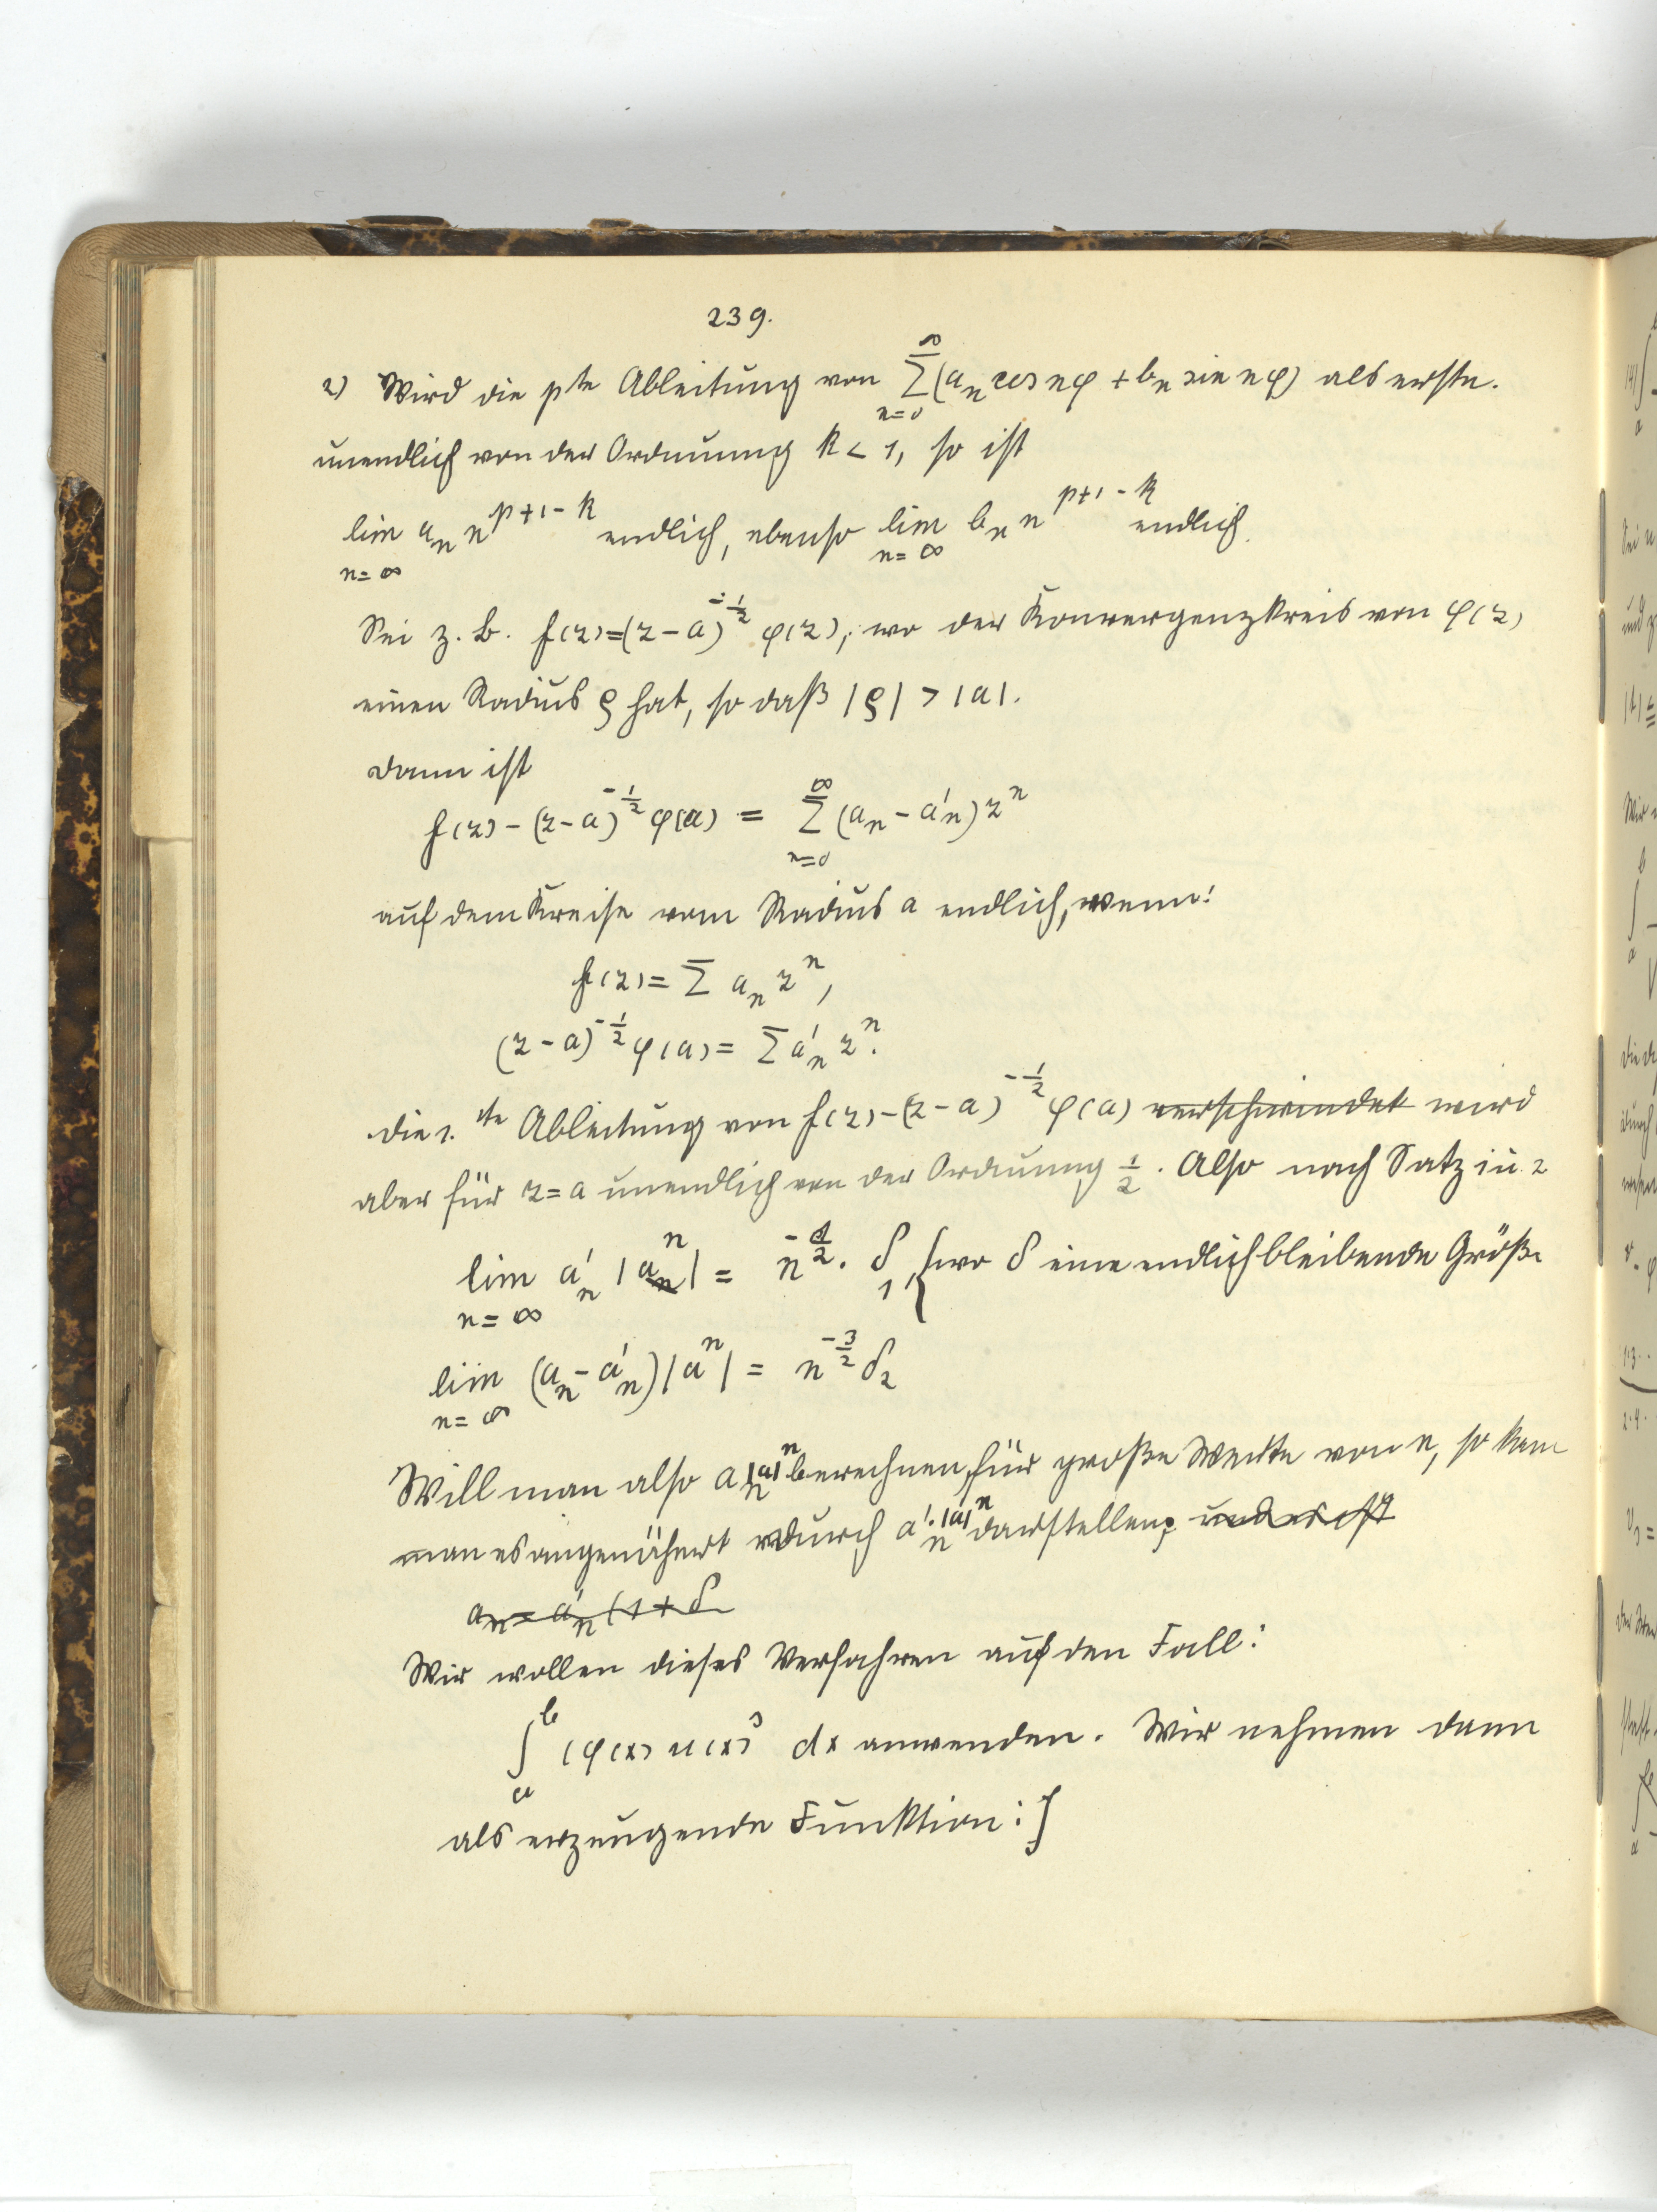 239.
2) Wird die pte Ableitung von \sum_{n=0}^{\infty} (a_n cos nφ + b_n sin nφ) als erste.
unendlich von der Ordnung k < 1, so ist
lim_{n=∞} a_n n^{p+1-k} endlich, ebenso lim_{n=∞} b_n n^{p+1-k} endlich.
Sei z. B. f(z)=(z-a)^{-\frac{1}{2}} φ(z), wo der Konvergenzkreis von φ(z)
einen Radius ρ hat, so daß |ρ| > |a|.
dann ist
f(z) - (z-a)^{-\frac{1}{2}} φ(a) = \sum_{n=0}^{∞} (a_n - a'_n) z^n
auf dem Kreise vom Radius a endlich, wenn:
f(z) = Σ a_n z^n,
(z-a)^{-\frac{1}{2}} φ(a) = Σ a'_n z^n.
die 1.te Ableitung von f(z) - (z-a)^{-\frac{1}{2}} φ(a) verschwindet wird
aber für z=a unendlich von der Ordnung \frac{1}{2}. Also nach Satz in 2
lim_{n=∞} a'_n |a^n| = n^{-\frac{1}{2}} · δ_1, {wo δ eine endlichbleibende Größe
lim_{n=∞} (a_n - a'_n) |a^n| = n^{-\frac{3}{2}} δ_2
Will man also a_n |a|^n berechnen, für große Werte von n, so kann
man es angenähert durch a'_n · |a|^n darstellen; und es ist
a_n = a'_n (1 + δ
Wir wollen dieses Verfahren auf den Fall:
\int_a^b (φ(x) u(x))^3 dx anwenden. Wir nehmen dann
als erzeugende Funktion:}